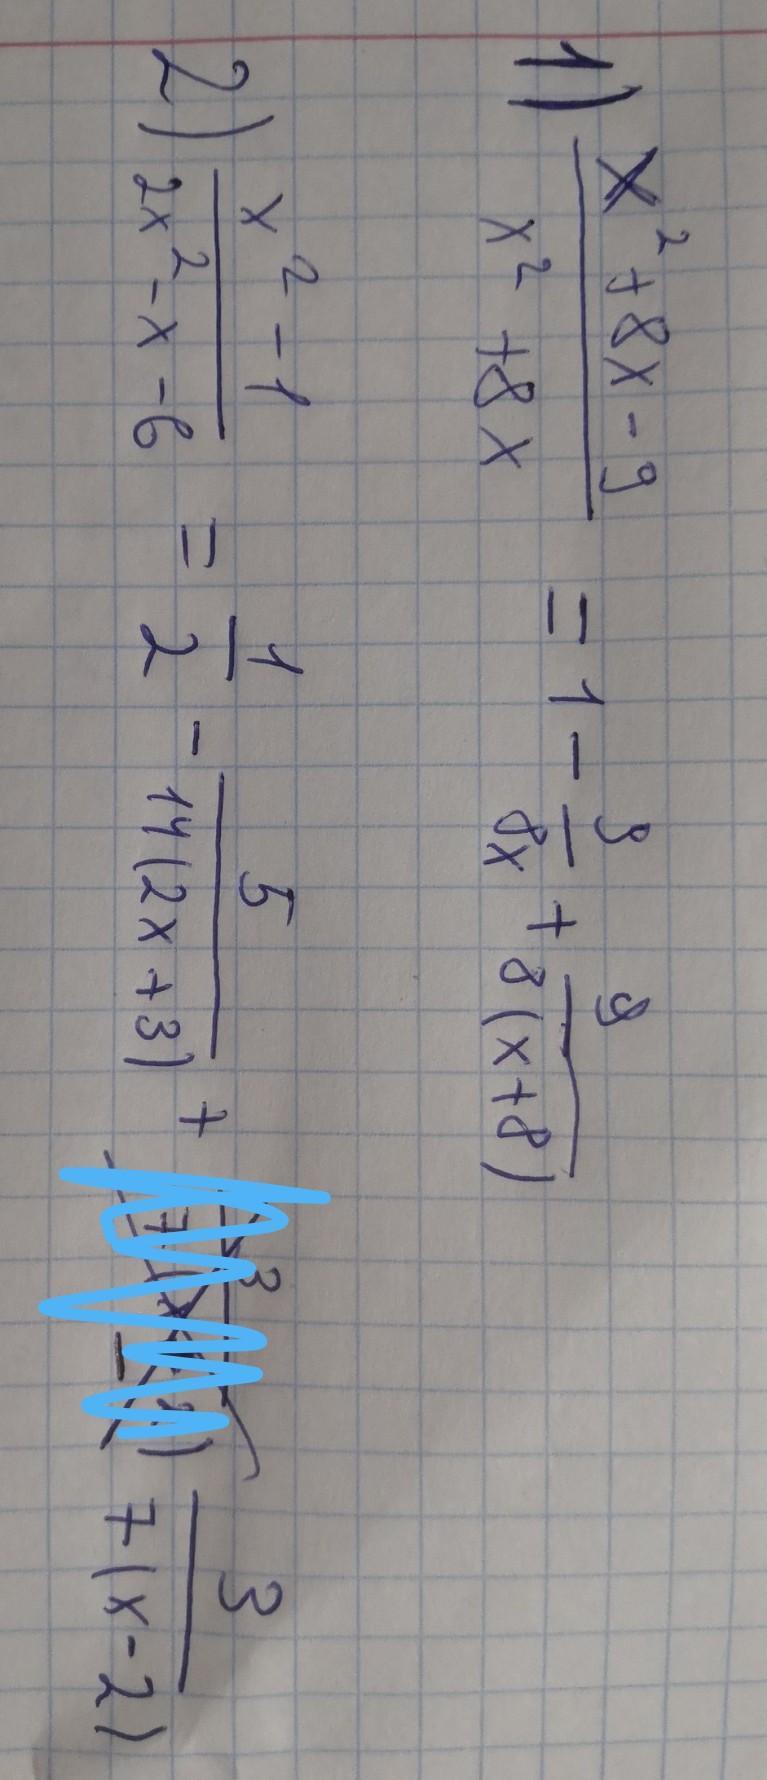 1) x² + 8x - 9 / x² + 8x = 1 - 9/8x + 9/8(x+8)
2) x² - 1 / 2x² - x - 6 = 1/2 - 5/14(2x+3) + 3/7(x-2)